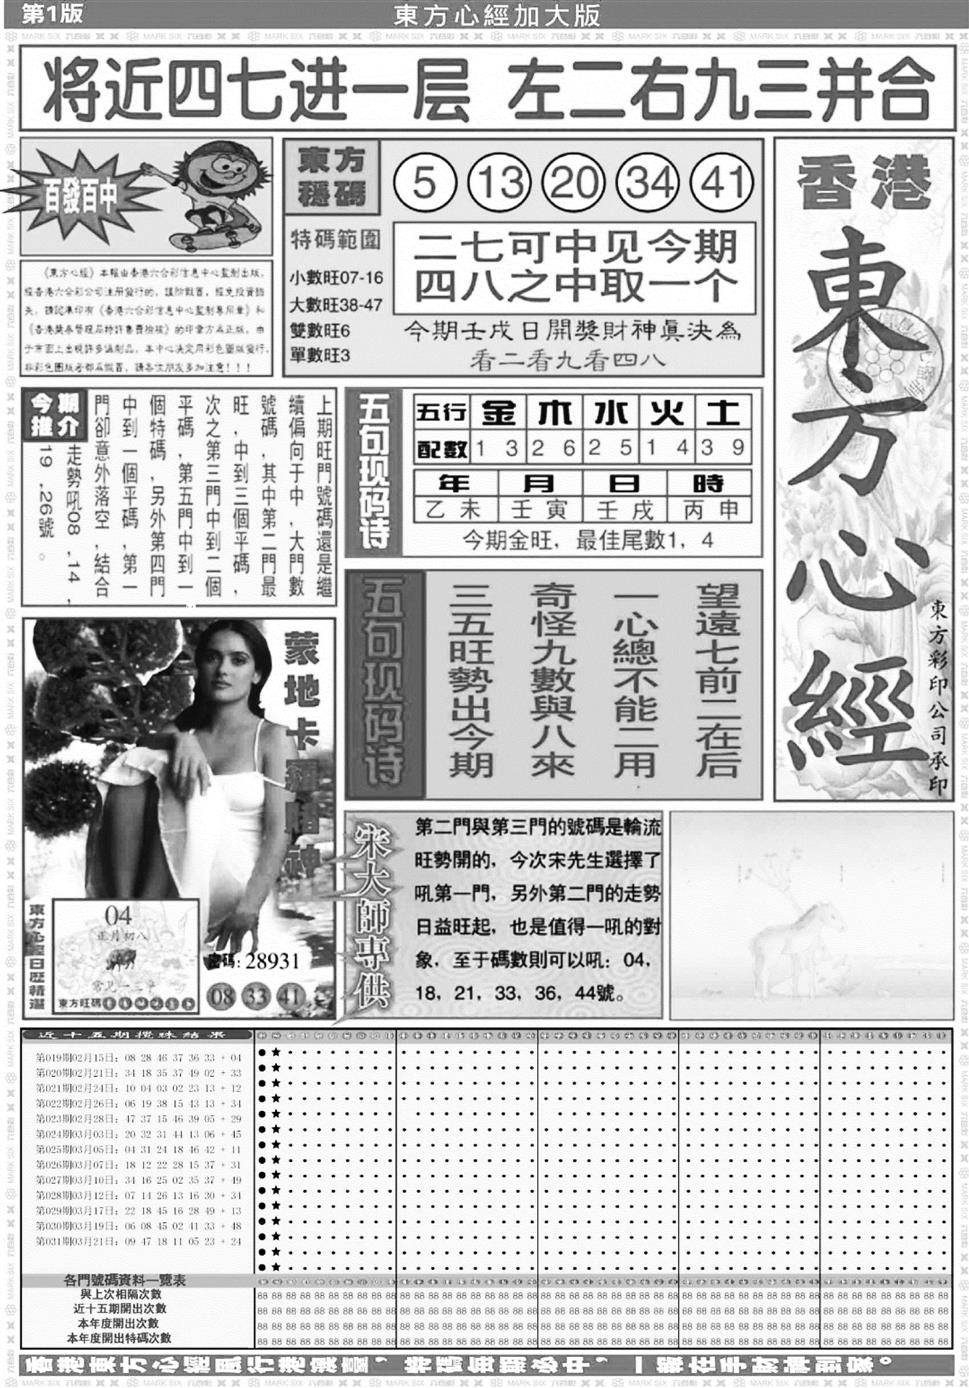 第1版
東方心經加大版
将近四七进一层 左二右九三并合
百發百中
《東方心經》本報由香港六合彩信息中心監制出版，
經香港六合彩公司注册發行的，謹防假冒，避免投資損
失，請認準印有《香港六合彩信息中心監制專用章》和
《香港獎券管理局特許售賣檢核》的印章方爲正版，由
于市面上出現許多僞制品，本中心决定用彩色圖版發行，
非彩色圖版者都爲假冒，請各位朋友多加注意！！！
東方
穩碼
5 13 20 34 41
特碼範圍
小數旺07-16
大數旺38-47
雙數旺6
單數旺3
二七可中见今期
四八之中取一个
今期壬戌日開獎財神真决為
看二看九看四八
香港
東方心經
東方彩印公司承印
今期
推介
上期旺門號碼還是繼
續偏向于中，大門數
號碼，其中第二門最
旺，中到三個平碼，
次之第三門中到二個
平碼，第五門中到一
個特碼，另外第四門
中到一個平碼，第一
門卻意外落空，結合
走勢吼08，14，
19，26號。
五句现码诗
五行 金 木 水 火 土
配數 1 3 2 6 2 5 1 4 3 9
年 月 日 時
乙未 壬寅 壬戌 丙申
今期金旺，最佳尾數1，4
五句现码诗
望遠七前二在后
一心總不能二用
奇怪九數與八來
三五旺勢出今期
蒙地卡羅賭神
東方心經日歷精選
04
正月初八
常见一二中
東方旺碼
密碼: 28931
08 33 41
宋大師專供
第二門與第三門的號碼是輪流
旺勢開的，今次宋先生選擇了
吼第一門，另外第二門的走勢
日益旺起，也是值得一吼的對
象，至于碼數則可以吼：04，
18，21，33，36，44號。
近十五期攪珠結果
第019期02月15日: 08 28 46 37 36 33 + 04
第020期02月21日: 34 18 35 37 49 02 + 33
第021期02月24日: 10 04 03 02 23 13 + 12
第022期02月26日: 06 19 38 15 43 13 + 34
第023期02月28日: 47 37 15 46 39 05 + 29
第024期03月03日: 20 32 31 44 13 06 + 45
第025期03月05日: 04 31 24 18 46 42 + 11
第026期03月07日: 18 12 22 28 15 37 + 31
第027期03月10日: 34 16 25 02 35 37 + 49
第028期03月12日: 07 14 26 13 16 30 + 34
第029期03月17日: 22 18 45 16 28 49 + 13
第030期03月19日: 06 08 45 02 41 33 + 48
第031期03月21日: 09 47 18 11 05 23 + 24
各門號碼資料一覽表
與上次相隔次數
近十五期開出次數
本年度開出次數
本年度開出特碼次數
香港東方心經風行港澳臺，特碼每期必中，一報在手財神到家。